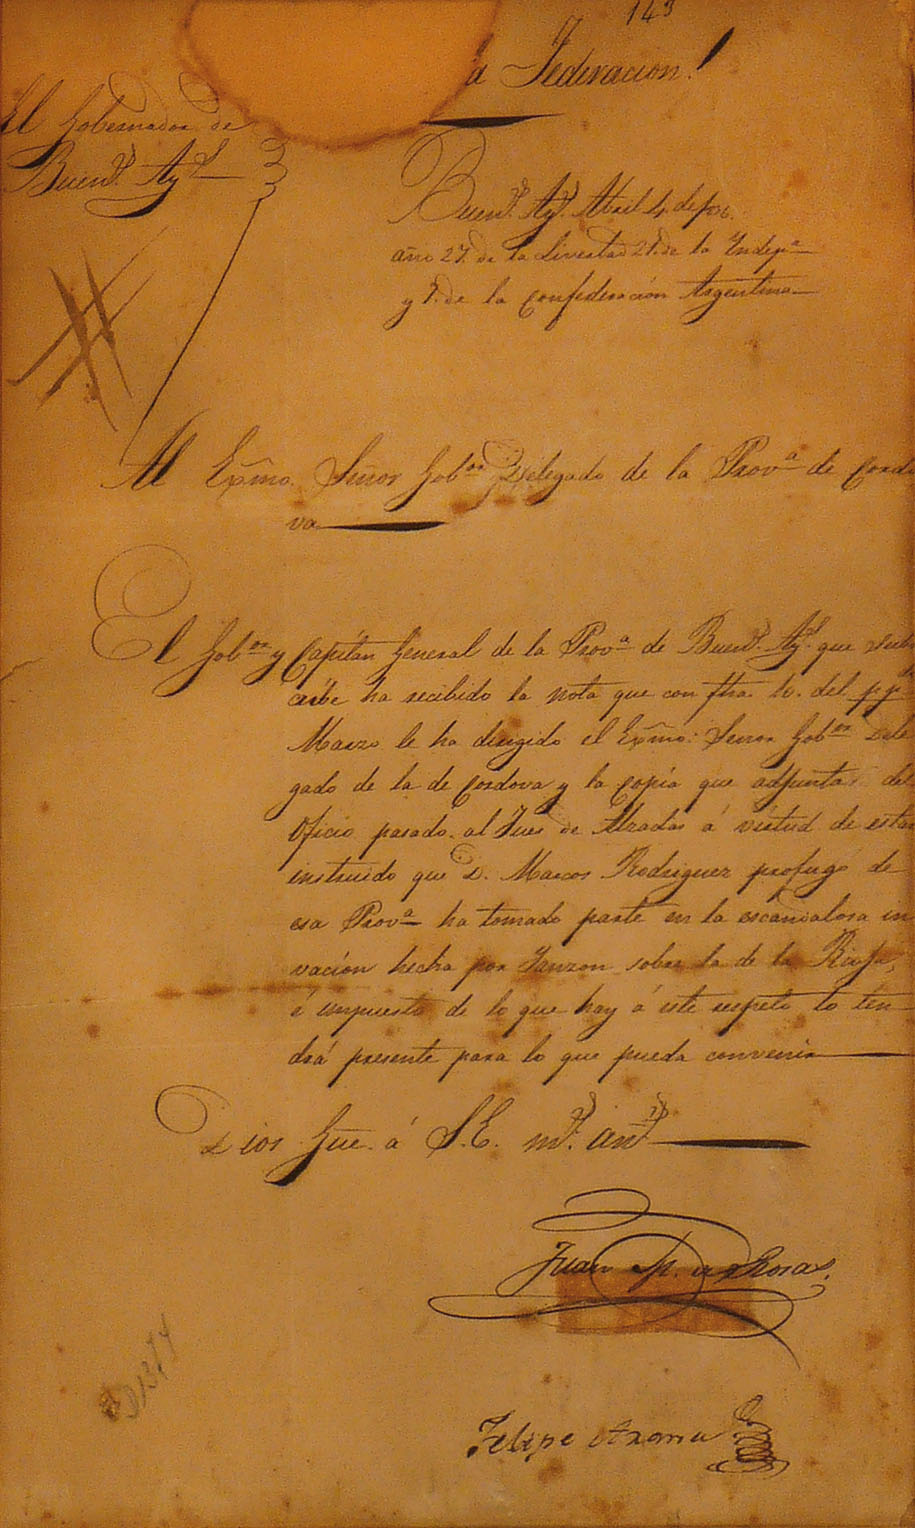 143
a Federacion!
El Gobernador de
Buen.s Ay.s
Buen.s Ay.s Abril 4 de 1836.
año 27. de la Livertad 21. de la Indep.a
y 7. de la Confederación Argentina
Al Exmo. Señor Gob.or Delegado de la Prov.a de Cordo
va
El Gob.or y Capitán General de la Prov.a de Buen.s Ay.s que subs
cribe ha recibido la nota que con fha. 10. del pp.
Marzo le ha dirigido el Exmo: Señor Gob.or Dele
gado de la de Cordova y la Copia que adjunta del
Oficio pasado al Jues de Alzadas á virtud de estar
instruido que D. Marcos Rodriguez profugo de
esa Prov.a ha tomado parte en la escandalosa in
vación hecha por Yanzon sobre la de la Rioja,
é impuesto de lo que hay á este respeto lo ten
drá presente para lo que pueda convenir
Dios Gue. á S.E. m.s an.s
Juan M. de Rosas.
Felipe Arana